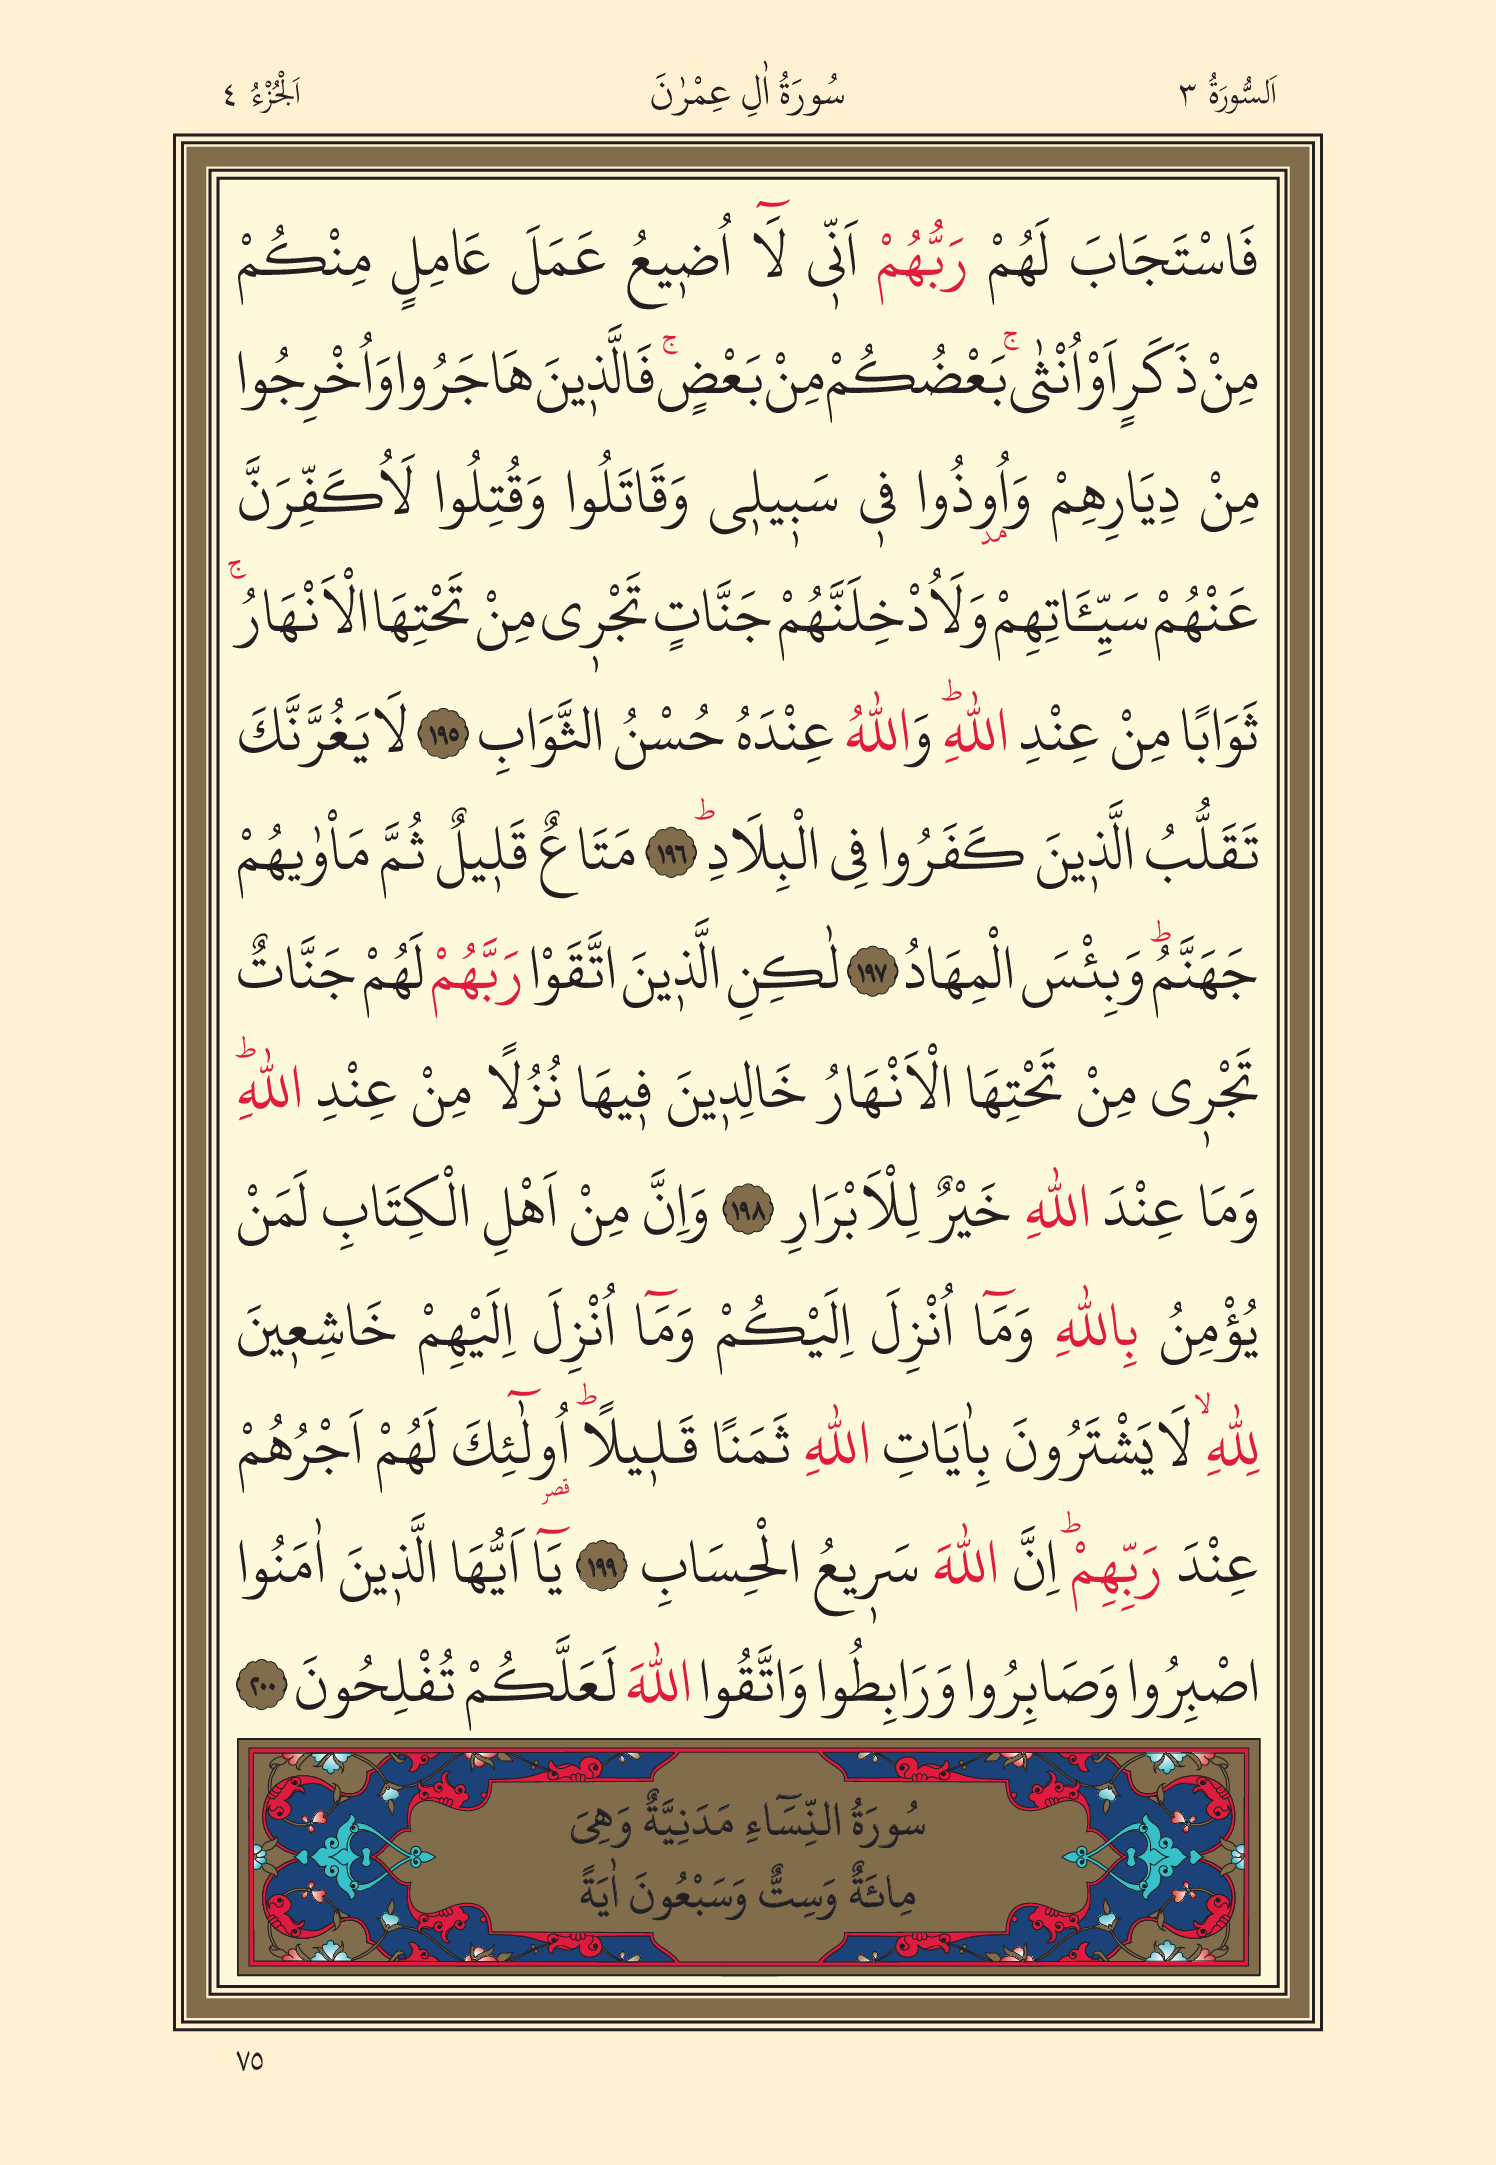 اَلسُّورَةُ ٣ سُورَةُ اٰلِ عِمْرٰنَ اَلْجُزْءُ ٤
فَاسْتَجَابَ لَهُمْ رَبُّهُمْ اَنّٖى لَٓا اُضٖيعُ عَمَلَ عَامِلٍ مِنْكُمْ
مِنْ ذَكَرٍ اَوْ اُنْثٰىۚ بَعْضُكُمْ مِنْ بَعْضٍۚ فَالَّذٖينَ هَاجَرُوا وَاُخْرِجُوا
مِنْ دِيَارِهِمْ وَاُوذُوا فٖى سَبٖيلٖى وَقَاتَلُوا وَقُتِلُوا لَاُكَفِّرَنَّ
مد
عَنْهُمْ سَيِّـَٔاتِهِمْ وَلَاُدْخِلَنَّهُمْ جَنَّاتٍ تَجْرٖى مِنْ تَحْتِهَا الْاَنْهَارُۚ
ثَوَابًا مِنْ عِنْدِ اللّٰهِؕ وَاللّٰهُ عِنْدَهُ حُسْنُ الثَّوَابِ ١٩٥ لَا يَغُرَّنَّكَ
تَقَلُّبُ الَّذٖينَ كَفَرُوا فِى الْبِلَادِؕ ١٩٦ مَتَاعٌ قَلٖيلٌ ثُمَّ مَاْوٰيهُمْ
جَهَنَّمُؕ وَبِئْسَ الْمِهَادُ ١٩٧ لٰكِنِ الَّذٖينَ اتَّقَوْا رَبَّهُمْ لَهُمْ جَنَّاتٌ
تَجْرٖى مِنْ تَحْتِهَا الْاَنْهَارُ خَالِدٖينَ فٖيهَا نُزُلًا مِنْ عِنْدِ اللّٰهِؕ
وَمَا عِنْدَ اللّٰهِ خَيْرٌ لِلْاَبْرَارِ ١٩٨ وَاِنَّ مِنْ اَهْلِ الْكِتَابِ لَمَنْ
يُؤْمِنُ بِاللّٰهِ وَمَٓا اُنْزِلَ اِلَيْكُمْ وَمَٓا اُنْزِلَ اِلَيْهِمْ خَاشِعٖينَ
لِلّٰهِۙ لَا يَشْتَرُونَ بِاٰيَاتِ اللّٰهِ ثَمَنًا قَلٖيلًاؕ اُولٰٓئِكَ لَهُمْ اَجْرُهُمْ
قصر
عِنْدَ رَبِّهِمْؕ اِنَّ اللّٰهَ سَرٖيعُ الْحِسَابِ ١٩٩ يَٓا اَيُّهَا الَّذٖينَ اٰمَنُوا
اصْبِرُوا وَصَابِرُوا وَرَابِطُوا وَاتَّقُوا اللّٰهَ لَعَلَّكُمْ تُفْلِحُونَ ٢٠٠
سُورَةُ النِّسَٓاءِ مَدَنِيَّةٌ وَهِىَ
مِائَةٌ وَسِتٌّ وَسَبْعُونَ اٰيَةً
٧٥